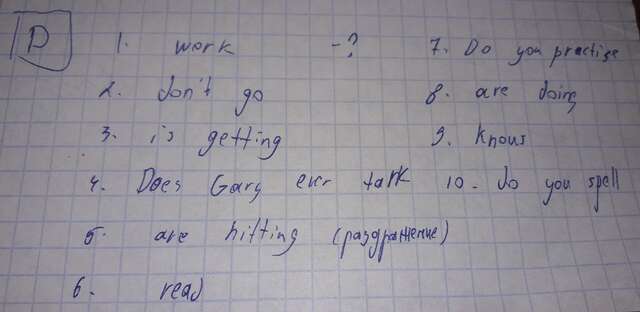 D
1. work -? 7. Do you practise
2. don't go 8. are doing
3. is getting 9. knows
4. Does Gary ever talk 10. do you spell
5. are hitting (раздражение)
6. read